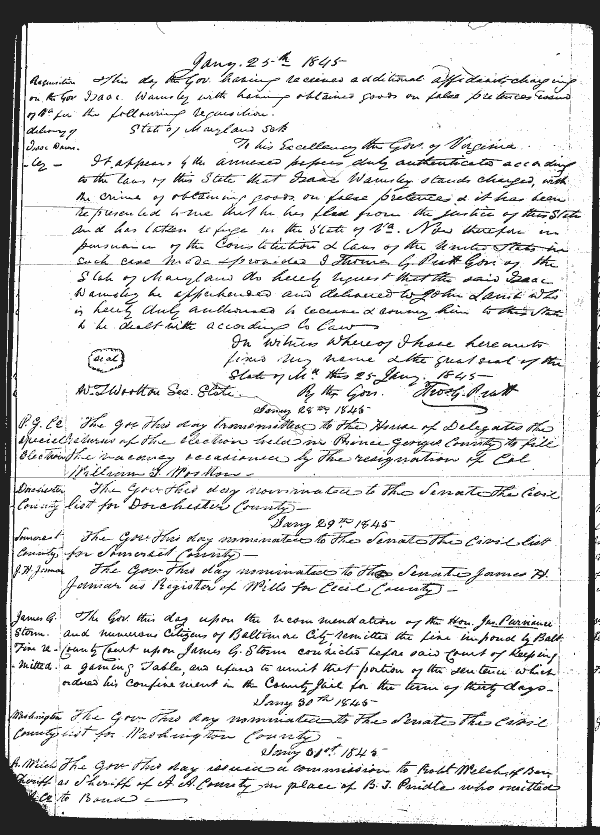 Jany. 25th 1845
Requisition This day the Gov. having received additional affidavits charging
on the Gov Isaac Wamsley with having obtained goods on false pretences issued
of Va for the following requisition.
delivery of State of Maryland Sct
Isaac Wams- To his Excellency the Gov. of Virginia
-ley - It appears by the annexed papers, duly authenticated according
to the laws of this State that Isaac Wamsley stands charged with
the crime of obtaining goods on false pretences & it has been
represented to me that he has fled from the justice of this State
and has taken refuge in the State of Va. Now therefore in
pursuance of the Constitution & laws of the United States in
such case made & provided I Thomas G. Pratt Gov. of the
State of Maryland do hereby request that the said Isaac
Wamsley be apprehended and delivered to John Lamb who
is hereby duly authorised to receive & convey him to this State
to be dealt with according to law
In Witness Whereof I have hereunto
seal fixed my name & the great seal of the
State of Md this 25 Jany. 1845
W. T. Wootton Sec. State. By the Gov. Tho. G. Pratt
Jany 28th 1845
P. G. Co The Gov this day transmitted to the House of Delegates the
Special returns of the election held in Prince georges County to fill
Election the vacancy occasioned by the resignation of Col
William T. Wootton -
Dorchester The Gov this day nominated to the Senate the Civil
County list for Dorchester County -
Jany 29th 1845
Somerset The Gov this day nominated to the Senate the Civil list
County for Somerset County -
J. H. Jamar The Gov this day nominated to the Senate James H.
Jamar as Register of Wills for Cecil County -
James G. The Gov. this day upon the recommendation of the Hon. Jas.
Storm and numerous Citizens of Baltimore City remitted the fine imposed by Balt
Fine re- County Court upon James G. Storm convicted before said Court of keeping
-mitted - a gaming Table, and refused to remit that portion of the sentence which
ordered his confinement in the County Jail for the term of thirty days -
Jany 30th 1845
Washington The Gov this day nominated to the Senate the Civil
County list for Washington County -
Jany 31st 1845
R. Welch The Gov this day issued a commission to Robt Welch of Ben
Sheriff as Sheriff of A. A. County in place of B. T. Pindle who omitted
to Bond -